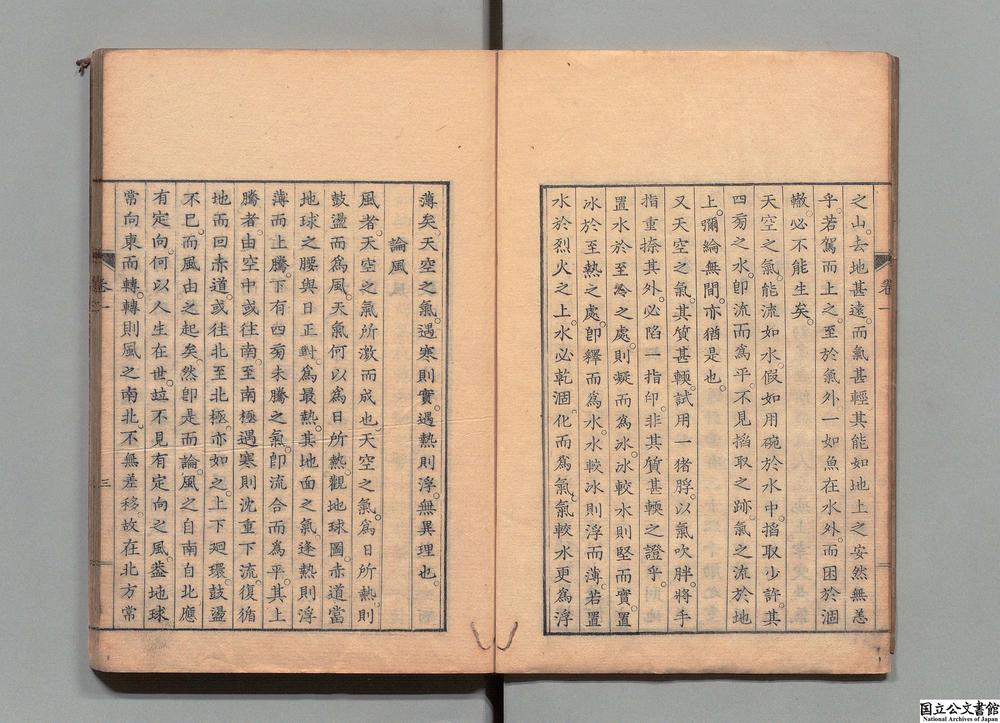 之山。去地甚遠。而氣甚輕。其能如地上之安然無恙
乎。若駕而上之。至於氣外。一如魚在水外。而困於涸
轍。必不能生矣。
天空之氣。能流如水。假如用碗於水中搯取少許。其
四旁之水。卽流而爲平。不見搯取之跡。氣之流於地
上。彌綸無間。亦猶是也。
又天空之氣。其質甚輭。試用一猪脬。以氣吹胖。將手
指重捺其外。必陷一指印。非其質甚輭之證乎。
置水於至冷之處。則凝而爲冰。冰較水則堅而實。置
冰於至熱之處。卽釋而爲水。水較冰則浮而薄。若置
水於烈火之上。水必乾涸。化而爲氣。氣較水更爲浮
卷一
薄矣。天空之氣。遇寒則實。遇熱則浮。無異理也。
論風
風者。天空之氣所激而成也。天空之氣。爲日所熱。則
鼓盪而爲風。天氣何以爲日所熱。觀地球圖。赤道當
地球之腰。與日正對。爲最熱。其地面之氣。逢熱則浮
薄而上騰。下有四旁未騰之氣。卽流合而爲平。其上
騰者。由空中或往南。至南極。遇寒則沈重下流。復循
地而回赤道。或往北至北極。亦如之。上下廻環。鼓盪
不已。而風由之起矣。然卽是而論。風之自南自北。應
有定向。何以人生在世。竝不見有定向之風。葢地球
常向東而轉。轉則風之南北。不無差移。故在北方常
卷一
三
国立公文書館
National Archives of Japan